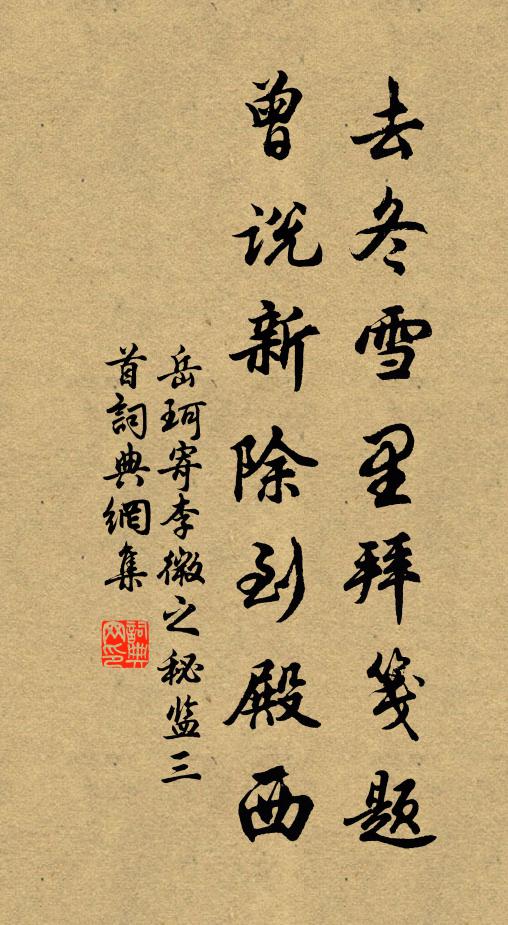 去冬雪里拜笺题
曾说新除到殿西
岳珂寄李微之秘监三
首詞典網集
詞典
网印